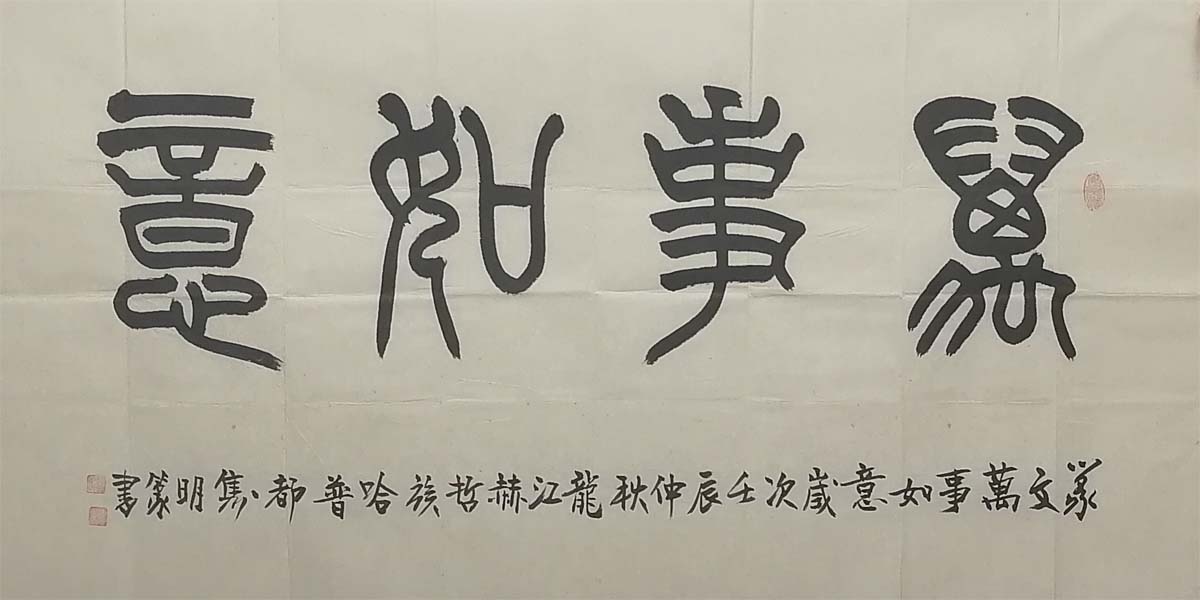 萬事如意
篆文萬事如意歲次壬辰仲秋龍江赫哲族哈普都隽明篆書